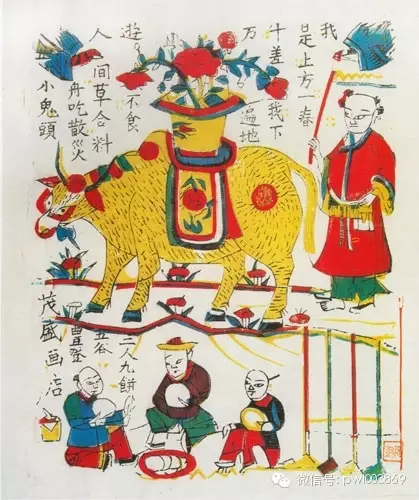 我
是上方春
牛差我下
方遍地
遊
不食
人間草合料
丹吃散災
小鬼頭
二人九餅
五谷
豊登
茂盛画店
微信号: pwl003869